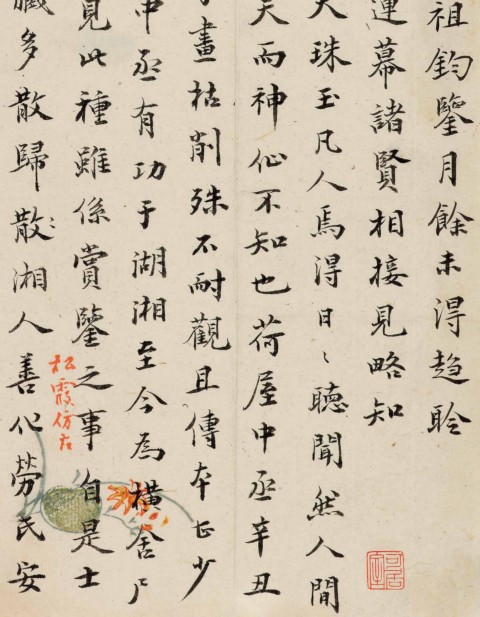 祖鈞鑒月餘未得趋聆
連幕諸賢相接見略知
大珠玉凡人焉得日〻聽聞然人間
天而神仙不知也荷屋中丞辛丑
畫枯削殊不耐觀且傳本甚少
中丞有功于湖湘至今為橫舍尸
見此種雖係賞鑒之事自是士
臧多散歸散湘人善化勞民安
松霞仿古